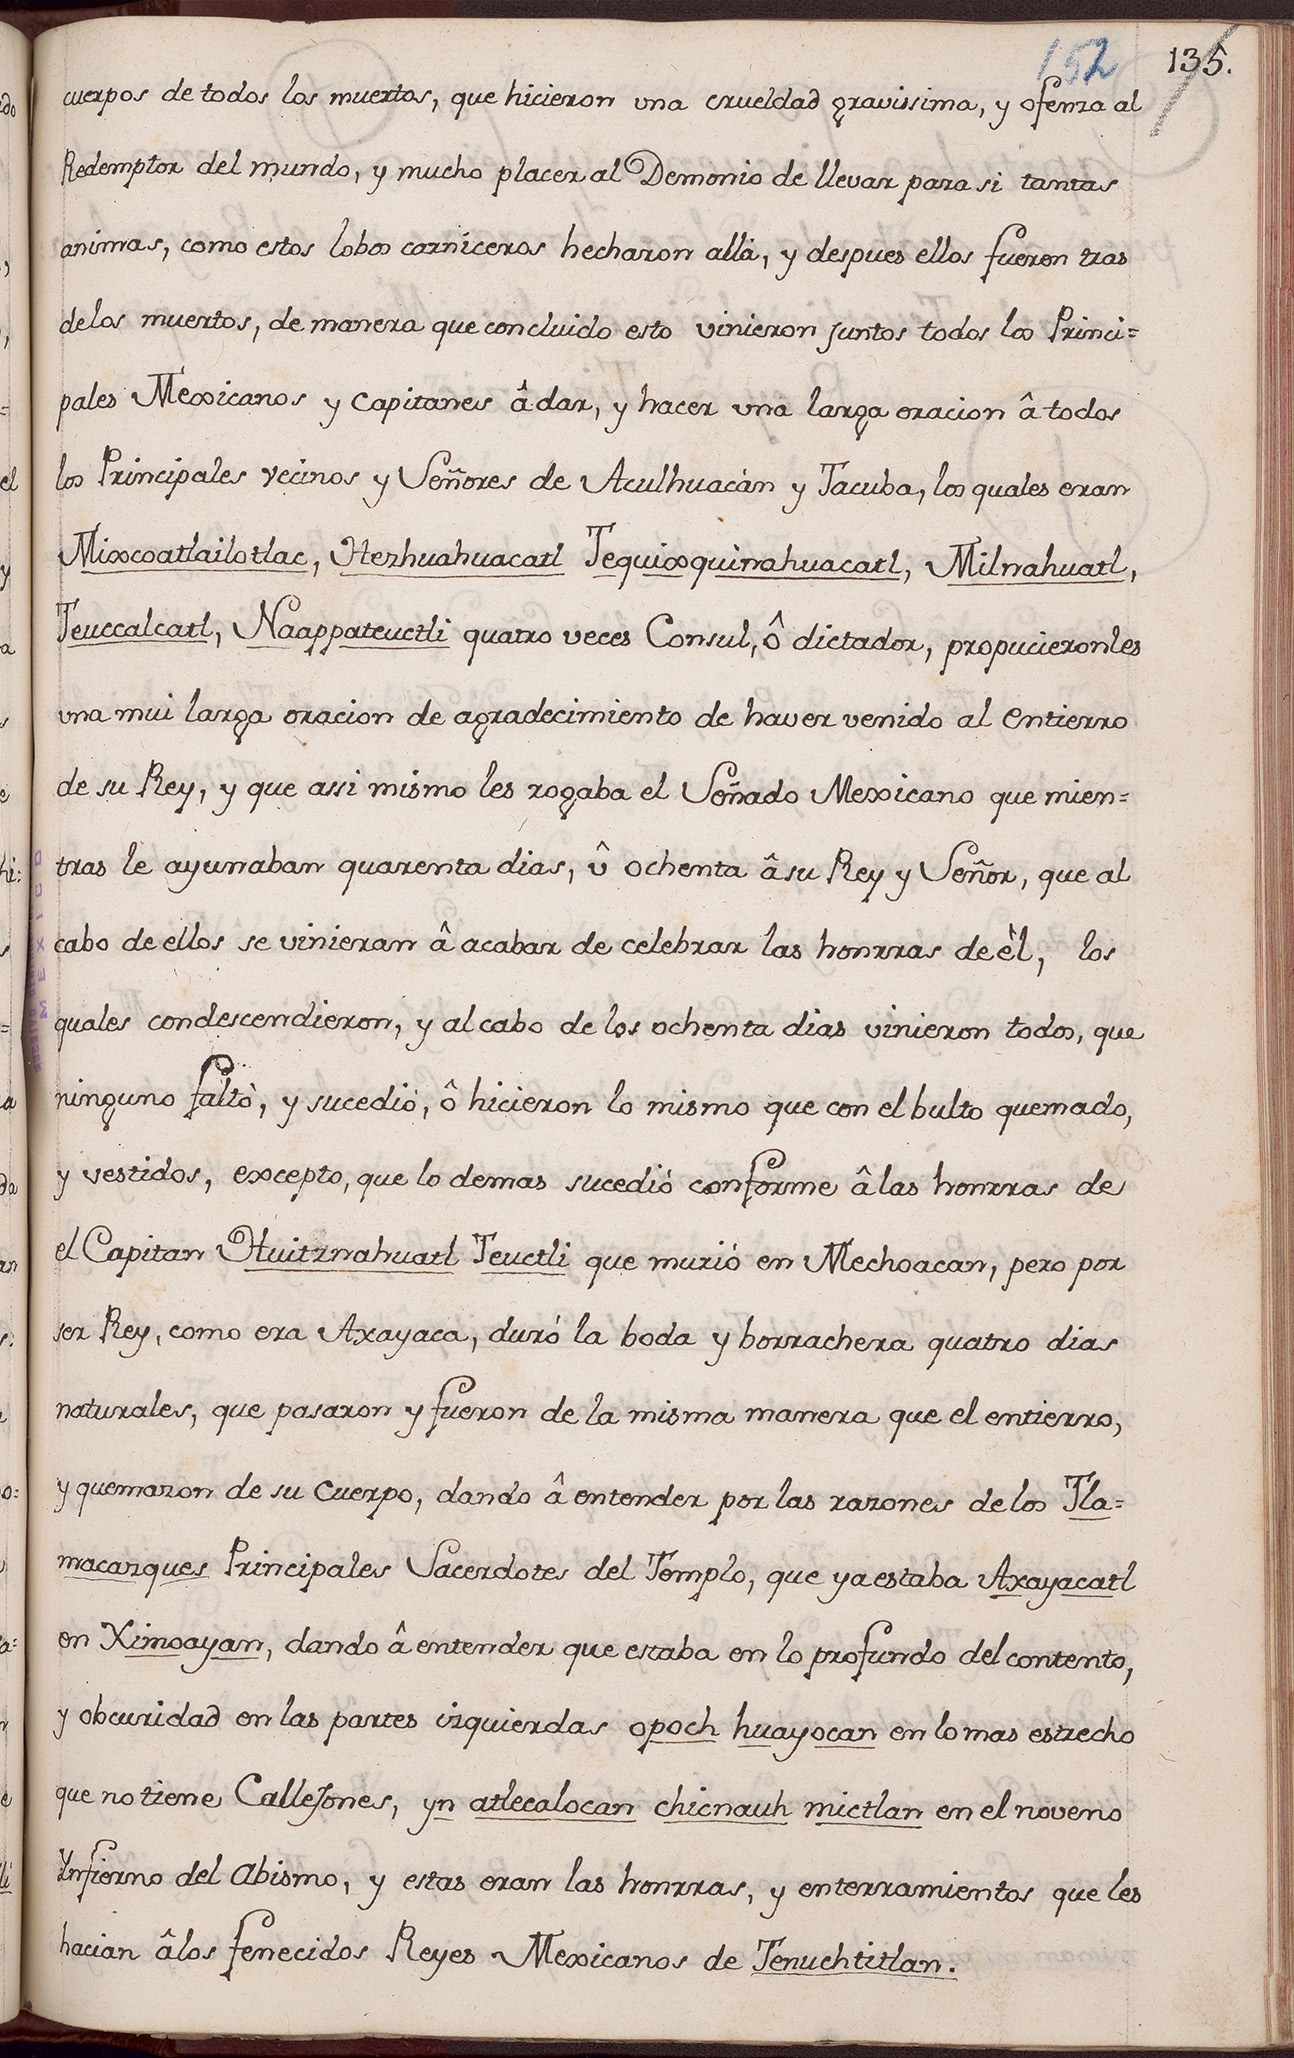 152 135.
cuerpos de todos los muertos, que hicieron vna crueldad gravissima, y ofenza al
Redemptor del mundo, y mucho placer al Demonio de llevar para si tantas
animas, como estos lobos carniceros hecharon allà, y despues ellos fueron tras
delos muertos, de manera que concluido esto vinieron juntos todos los Princi=
pales Mexicanos y Capitanes â dar, y hacer vna larga oracion â todos
los Principales vecinos y Señores de Aculhuacàn y Tacuba, los quales eran
Mixcoatlailotlac, Hezhuahuacatl Tequixquinahuacatl, Milnahuatl,
Teuccalcatl, Naappateuctli quatro veces Consul, ô dictador, propucieronles
vna mui larga oracion de agradecimiento de haver venido al entierro
de su Rey, y que assi mismo les rogaba el Señado Mexicano que mien=
tras le ayunaban quarenta dias, û ochenta â su Rey y Señor, que al
cabo de ellos se vinieran â acabar de celebrar las honrras de èl, los
quales condescendieron, y al cabo de los ochenta dias vinieron todos, que
ninguno faltò, y sucedió, ô hicieron lo mismo que con el bulto quemado,
y vestidos, excepto, que lo demas sucedió conforme â las honrras de
el Capitan Huitznahuatl Teuctli que murió en Mechoacan, pero por
ser Rey, como era Axayaca, duró la boda y borrachera quatro dias
naturales, que pasaron y fueron de la misma manera que el entierro,
y quemaron de su Cuerpo, dando â entender por las razones de los Tla=
macazques Principales Sacerdotes del Templo, que ya estaba Axayacatl
en Ximoayan, dando â entender que estaba en lo profundo del contento,
y obcuridad en las partes izquierdas opoch huayocan en lo mas estrecho
que no tiene Callejones, yn atlecalocan chicnauh mictlan en el noveno
Ynfierno del Abismo, y estas eran las honrras, y enterramientos que les
hacian âlos fenecidos Reyes Mexicanos de Tenuchtitlan.